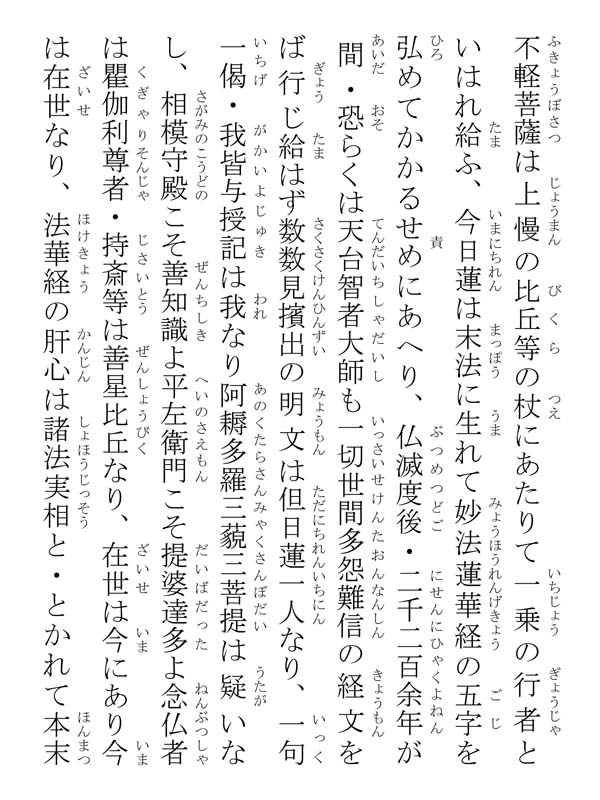 不軽菩薩は上慢の比丘等の杖にあたりて一乗の行者と
いはれ給ふ、今日蓮は末法に生れて妙法蓮華経の五字を
弘めてかかるせめにあへり、仏滅度後・二千二百余年が
間・恐らくは天台智者大師も一切世間多怨難信の経文を
ば行じ給はず数数見擯出の明文は但日蓮一人なり、一句
一偈・我皆与授記は我なり阿耨多羅三藐三菩提は疑いな
し、相模守殿こそ善知識よ平左衛門こそ提婆達多よ念仏者
は瞿伽利尊者・持斎等は善星比丘なり、在世は今にあり今
は在世なり、法華経の肝心は諸法実相と・とかれて本末